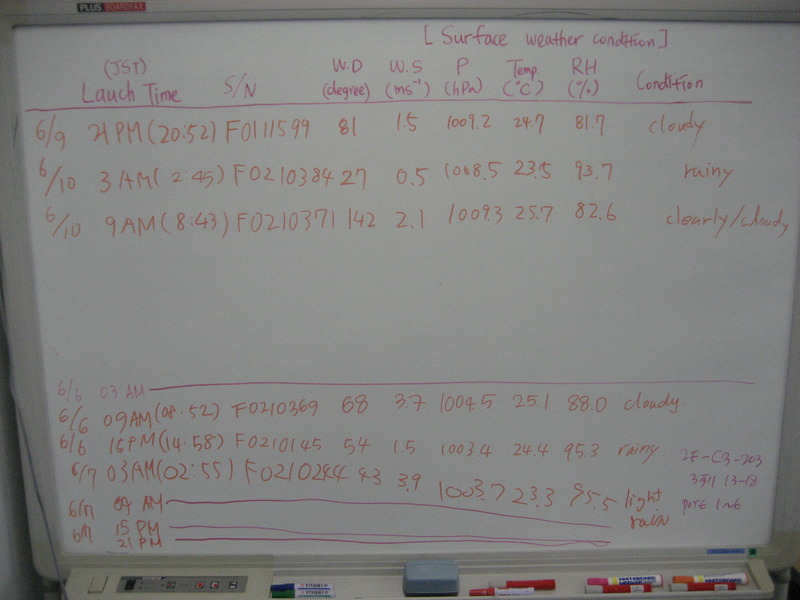 PLUS BOARDFAX
[Surface weather condition]
(JST) W.D W.S P Temp. RH
Lauch Time S/N (degree) (ms⁻¹) (hPa) (°C) (%) Condition
6/9 21PM(20:52) F0111599 81 1.5 1009.2 24.7 81.7 cloudy
6/10 3AM(2:45) F0210384 27 0.5 1008.5 23.5 93.7 rainy
6/10 9AM(8:43) F0210371 142 2.1 1009.3 25.7 82.6 clearly/cloudy
6/6 03 AM
6/6 09AM(08:52) F0210369 68 3.7 1004.5 25.1 88.0 cloudy.
6/6 15PM(14:58) F0210145 54 1.5 1003.4 24.4 95.3 rainy
6/7 03AM(02:55) F0210244 43 3.9 1003.7 23.3 95.5 light rain
6/7 09 AM
6/7 15 PM
21 PM
2F-C3-203
13-18
port 1~6